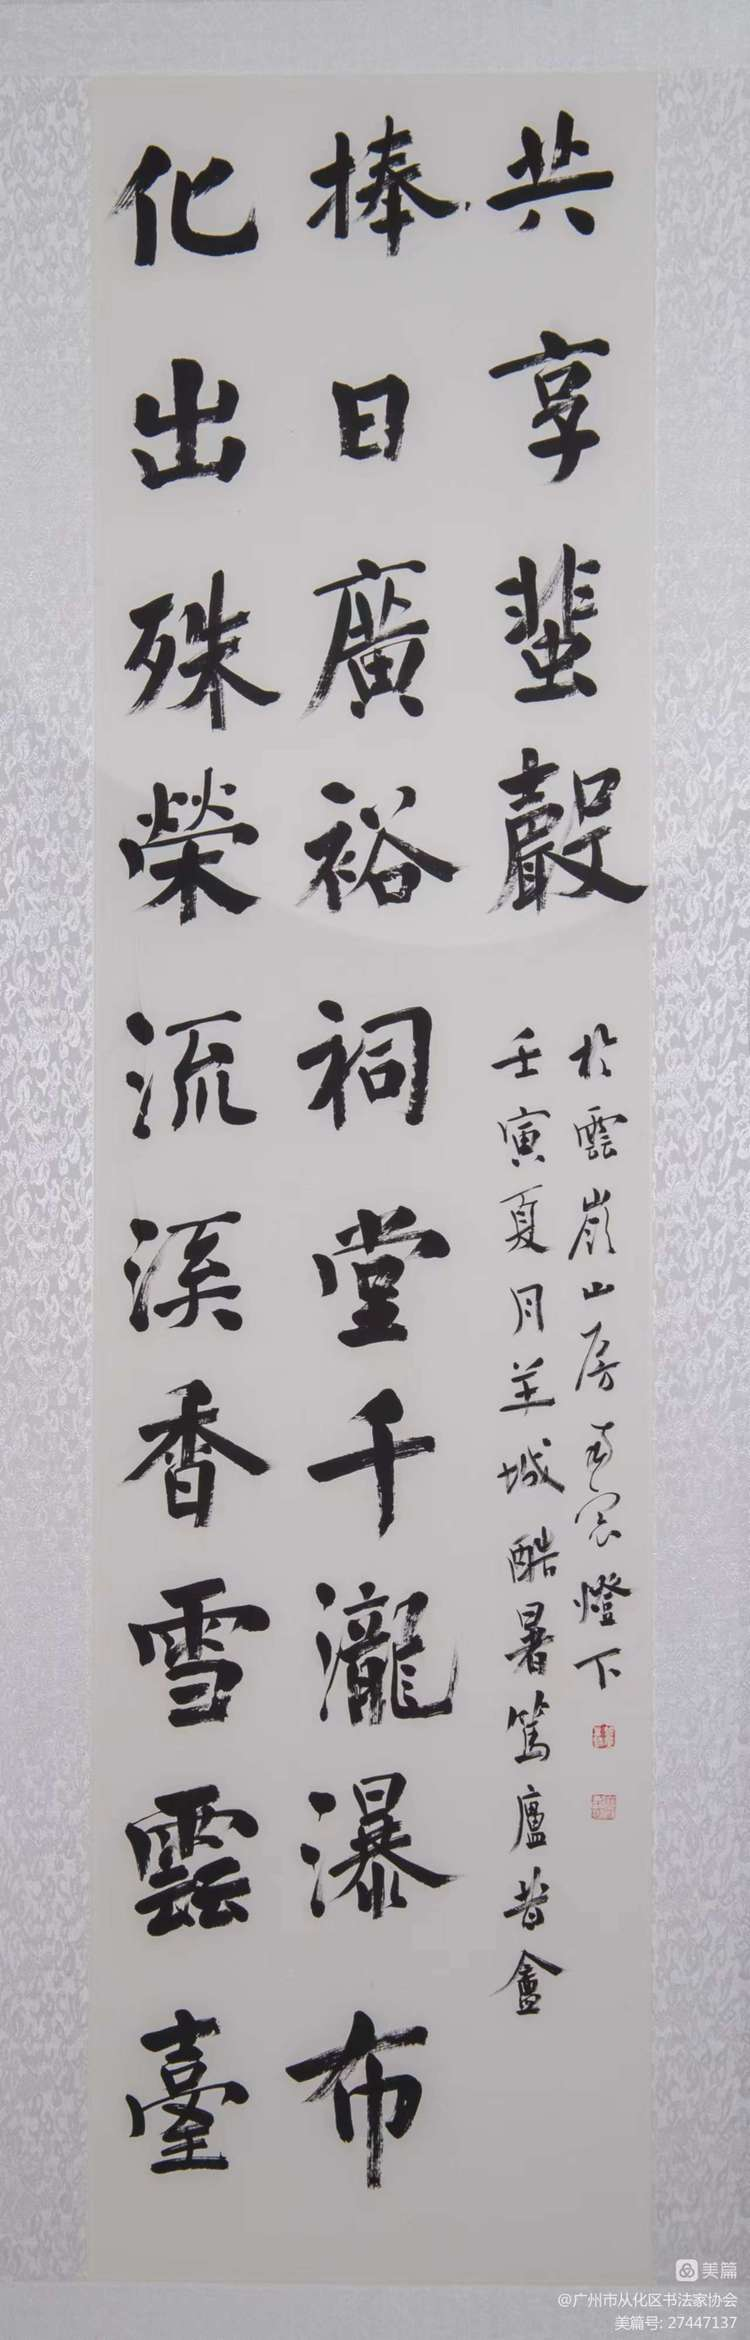 化出殊榮流溪香雪雲臺
捧日廣裕祠堂千瀧瀑布
共享蜚聲
壬寅夏月羊城酷暑篤廬昔盦
於雲嶺山房南窗燈下
美篇
@广州市从化区书法家协会
美篇号: 27447137